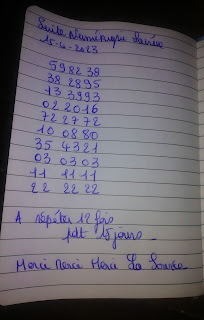 Suite Numérique Sacrée
15-4-2023
59 82 38
38 28 95
13 39 93
02 20 16
72 27 72
10 08 80
35 43 21
03 03 03
11 11 11
22 22 22
A répéter 12 fois
pdt 15 jours
Merci Merci Merci La Source